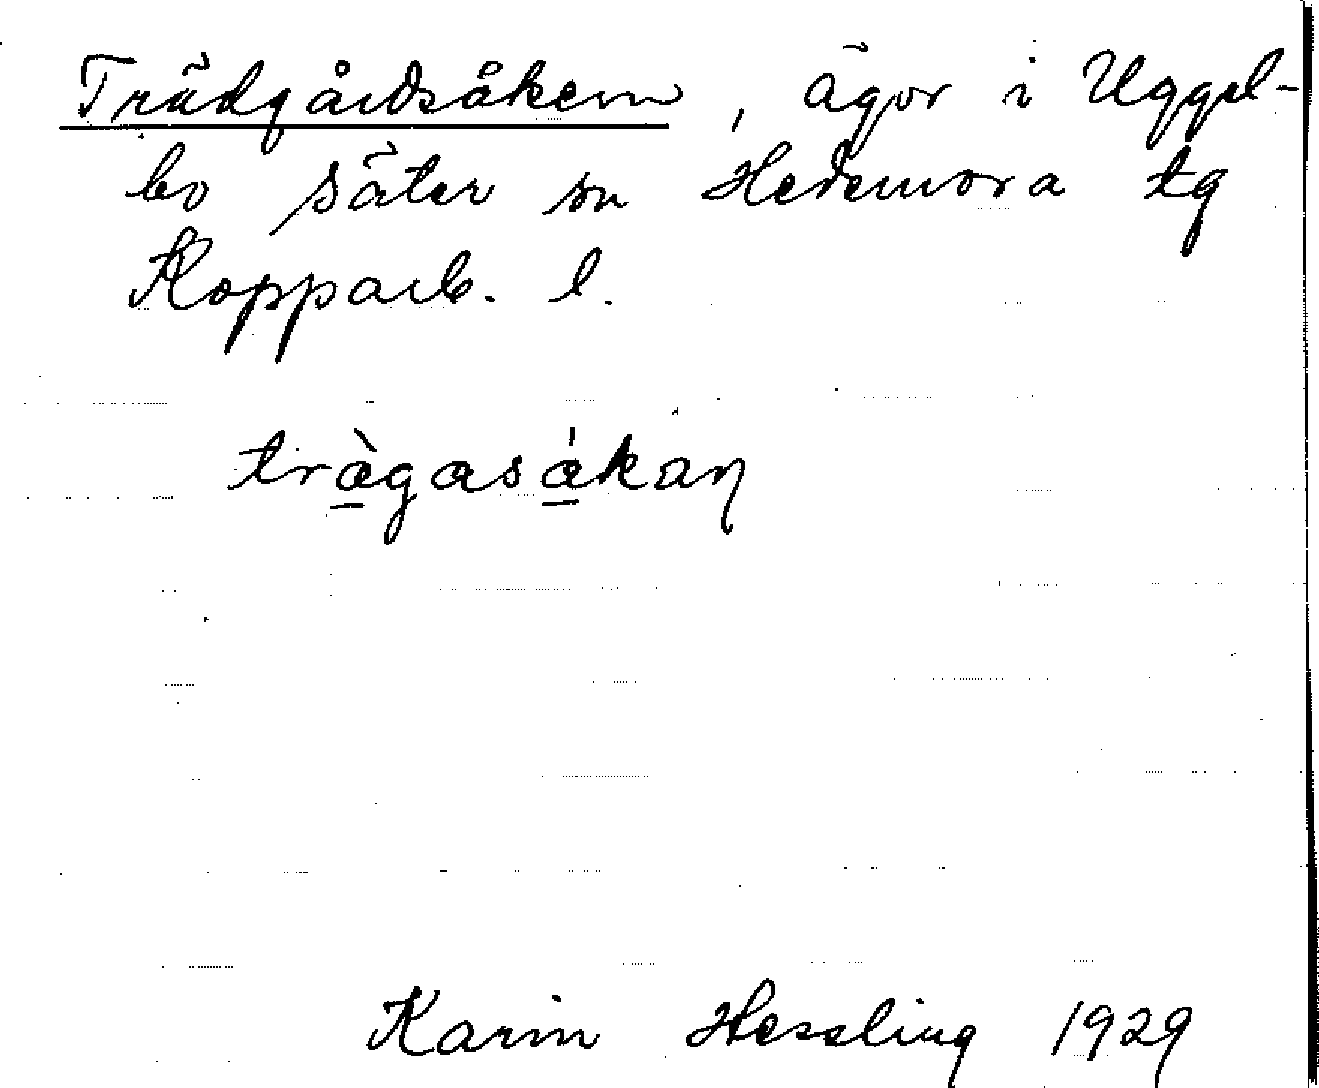 Trädgårdsåkern, ägor i Uggel-
bo Säter sn Hedemora tg
Kopparb. l.
tràgasákaŋ
Karin Hessling 1929